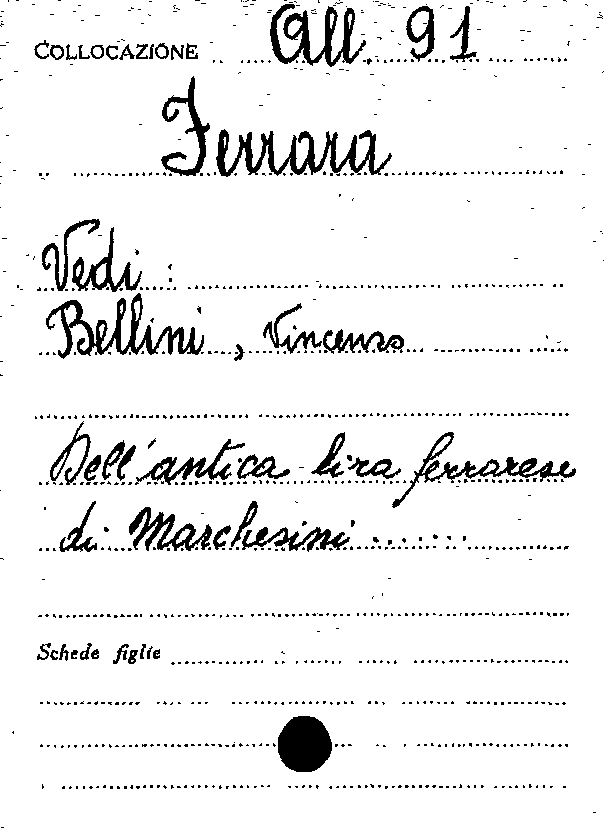 COLLOCAZIONE All. 91
Ferrara
Vedi :
Bellini, Vincenzo
Dell'antica lira ferrarese
di Marchesini .......
Schede figlie